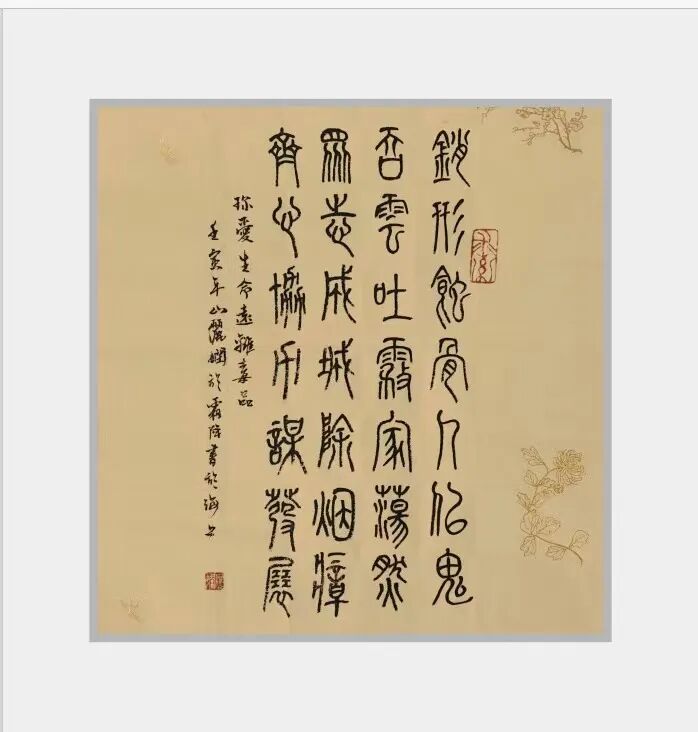 銷形蝕骨人似鬼
吞雲吐霧家蕩然
眾志成城除烟瘴
齊心協力謀發展
珍愛生命遠離毒品
壬寅年山麗於霜降書於海上